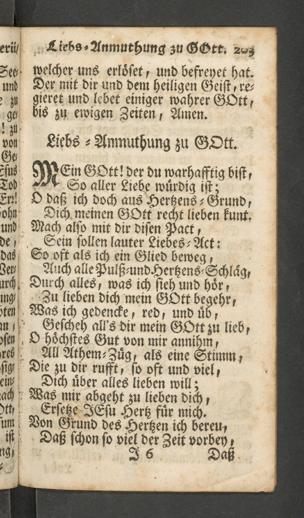 Liebs-Anmuthung zu GOtt. 203
welcher uns erlöset, und befreyet hat.
Der mit dir und dem heiligen Geist, re-
gieret und lebet einiger wahrer GOtt,
bis zu ewigen Zeiten, Amen.
Liebs-Anmuthung zu GOtt.
MEin GOtt! der du warhafftig bist,
So aller Liebe würdig ist;
O daß ich doch aus Hertzens-Grund,
Dich meinen GOtt recht lieben kunt.
Mach also mit dir disen Pact,
Sein sollen lauter Liebes-Act:
So oft als ich ein Glied beweg,
Auch alle Pulß- und Hertzens-Schläg,
Durch alles, was ich sieh und hör,
Zu lieben dich mein GOtt begehr,
Was ich gedencke, red, und üb,
Gescheh all's dir mein GOtt zu lieb,
O höchstes Gut von mir annihm,
All Athem-Züg, als eine Stimm,
Die zu dir rufft, so oft und viel,
Dich über alles lieben will;
Was mir abgeht zu lieben dich,
Ersetze JEsu Hertz für mich.
Von Grund des Hertzen ich bereu,
Daß schon so viel der Zeit vorbey,
J 6 Daß